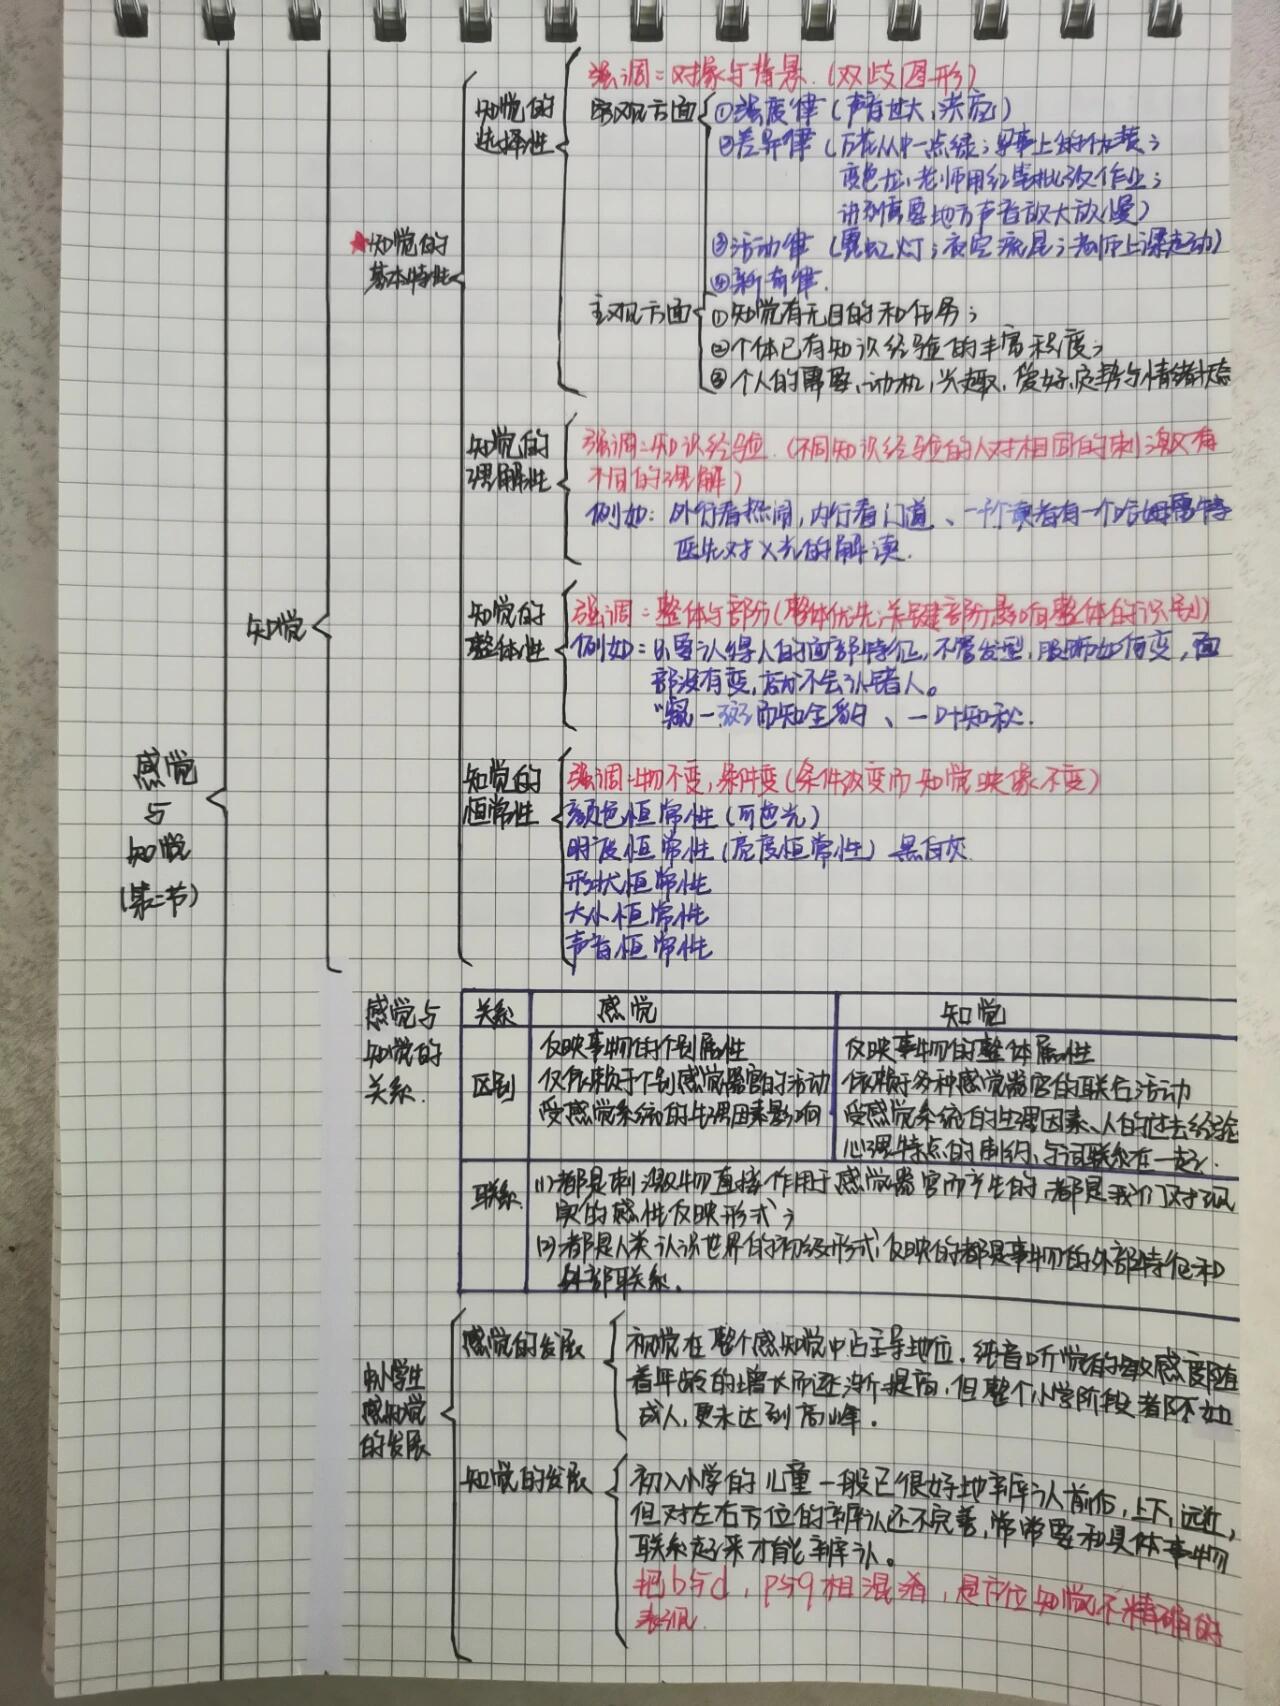 感觉
与
知觉
(第二节)
知觉
★知觉的
基本特性
知觉的
选择性
强调:对象与背景.(双歧图形)
客观方面
①强度律(声音过大,
②差异律(万花丛中一点绿;军事上的伪装;
变色龙;老师用红笔批改作业;
讲到重要地方声音放大放慢)
③活动律(霓虹灯;夜空流星;老师上课走动)
④新奇律.
主观方面
①知觉有无目的和任务;
②个体已有知识经验的丰富程度;
③个人的需要、动机,兴趣,爱好,定势与情绪状态
知觉的
理解性
强调:知识经验.(不同知识经验的人对相同的刺激又有
不同的理解)
例如:外行看热闹,内行看门道、一千个读者有一个哈姆雷特
医生对X光的解读.
知觉的
整体性
强调:整体与部分(整体优先;关键部分影响整体的识别)
例如:只要认得人的面部特征,不管发型,服饰如何变,面
部没有变,就不会认错人。
"窥一斑而知全豹、一叶知秋.
知觉的
恒常性
强调:物不变,条件变(条件改变而知觉映象不变)
颜色恒常性(有色光)
明度恒常性(亮度恒常性)黑白灰
形状恒常性
大小恒常性
声音恒常性
感觉与
知觉的
关系.
关系 感觉 知觉
区别
反映事物的个别属性
仅依赖于个别感觉器官的活动
受感觉系统的生理因素影响
反映事物的整体属性
依赖于多种感觉器官的联合活动
受感觉系统的生理因素、人的过去经验
心理特点的制约、与词联系在一起.
联系
(1)都是刺激物直接作用于感觉器官而产生的都是我们对现
实的感性反映形式;
(2)都是人类认识世界的初级形式,反映的都是事物的外部特征和
外部联系.
小学生
感知觉
的发展
感觉的发展
视觉在整个感知觉中占主导地位.纯音听觉的敏感度随
着年龄的增长而逐渐提高,但整个小学阶段都不如
成人,更未达到高峰.
知觉的发展
初入小学的儿童一般已很好地辨认前后,上下,远近,
但对左右方位的辨认还不完善,常常要和具体事物
联系起来才能辨认。
把b与d,p与q相混淆,是方位知觉不精确的
表现.